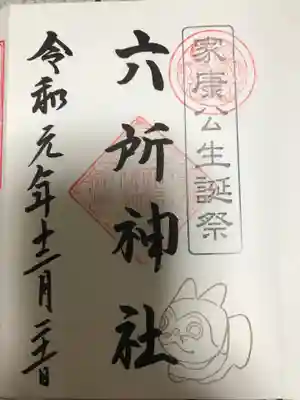 家康公生誕祭
六所神社
令和元年十二月二十一日